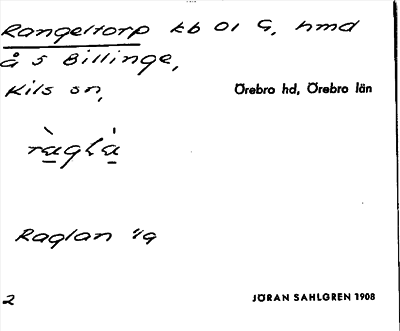 Rangeltorp kb 01 G, hmd
å S Billinge,
Kils sn,
Örebro hd, Örebro län
ràglà
Raglan
2
JÖRAN SAHLGREN 1908